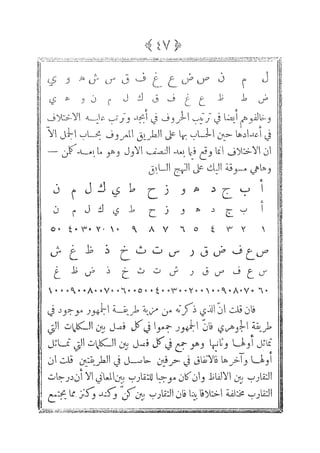 ﴿ ٤٧ ﴾
ل م ن ص ض ع غ ف ق س ش ه و ي
ض ظ ع غ ف ق ك ل م ن و ه ي
وخالفوهم أيضا في ترتيب الحروف في أبجد وترتب عليه الاختلاف
في أعدادها حين الحساب بها على الطريق المعروف بحساب الجمل الآ
ان الاختلاف انما وقع فيما بعد النصف الاول وهو ما بعد كلمن —
وهاهي مسوقة اليك على النهج السابق
أ ب ج د ه و ز ح ط ي ك ل م ن
أ ب ج د ه و ز ح ط ي ك ل م ن
١ ٢ ٣ ٤ ٥ ٦ ٧ ٨ ٩ ١٠ ٢٠ ٣٠ ٤٠ ٥٠
ص ع ف ض ق ر س ت ث خ ذ ظ غ ش
س ع ف ص ق ر ش ت ث خ ذ ض ظ غ
٦٠ ٧٠ ٨٠ ٩٠ ١٠٠ ٢٠٠ ٣٠٠ ٤٠٠ ٥٠٠ ٦٠٠ ٧٠٠ ٨٠٠ ٩٠٠ ١٠٠٠
فان قلت انّ الذي ذكرته من مزية طريقة الجمهور موجود في
طريقة الجوهري فانّ الجمهور جمعوا في كل فصل بين الكلمات التي
تماثل أولها وثانيها وهو جمع في كل فصل بين الكلمات التي تماثل
أولها وآخرها فالاتفاق في حرفين حاصل في الطريقتين قلت ان
التقارب بين الالفاظ وان كان موجبا للتقارب بين المعاني الا أن درجات
التقارب مختلفة اختلافا بينا فان التقارب بين كنّ وكند وكنز مما يجتمع